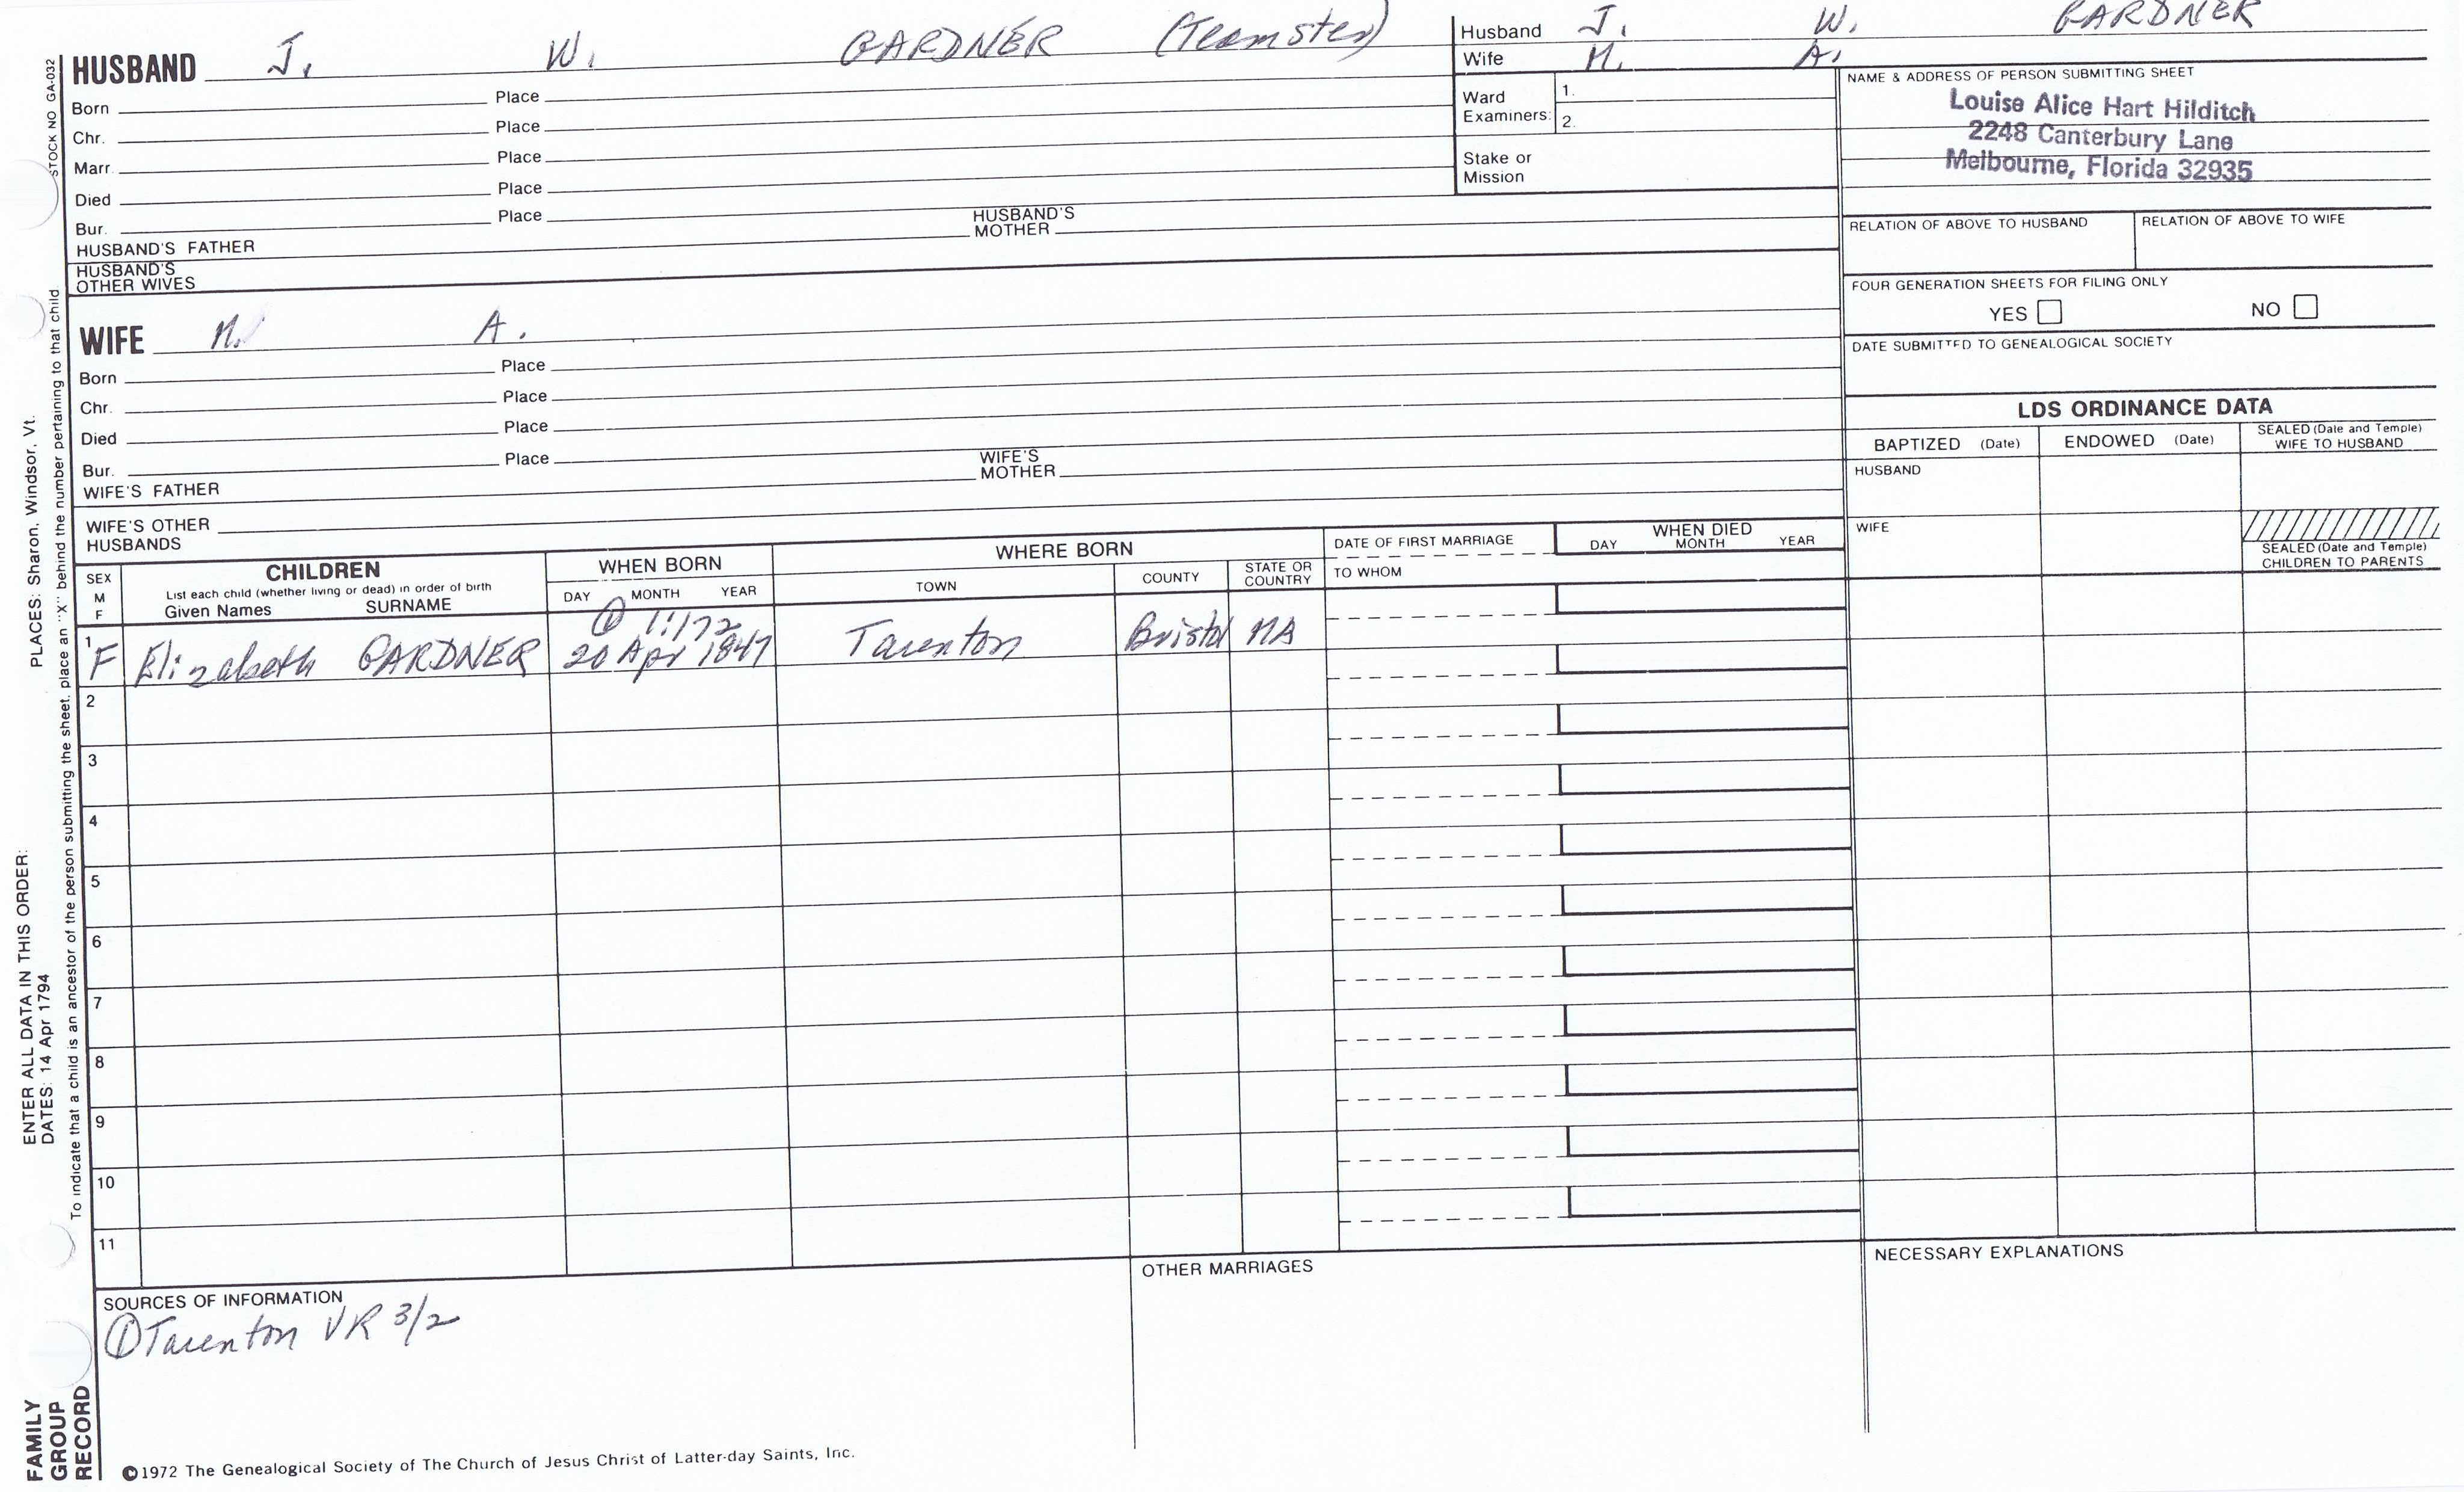 HUSBAND J. W. GARDNER (Teamster)
Born Place
Chr. Place
Marr. Place
Died Place
Bur. Place
HUSBAND'S FATHER HUSBAND'S MOTHER
HUSBAND'S OTHER WIVES
WIFE N. A.
Born Place
Chr. Place
Died Place
Bur. Place
WIFE'S FATHER WIFE'S MOTHER
WIFE'S OTHER HUSBANDS
Husband J. W. GARDNER
Wife N. A.
Ward Examiners: 1. 2.
Stake or Mission
NAME & ADDRESS OF PERSON SUBMITTING SHEET
Louise Alice Hart Hilditch
2248 Canterbury Lane
Melbourne, Florida 32935
RELATION OF ABOVE TO HUSBAND RELATION OF ABOVE TO WIFE
FOUR GENERATION SHEETS FOR FILING ONLY
YES NO
DATE SUBMITTED TO GENEALOGICAL SOCIETY
LDS ORDINANCE DATA
BAPTIZED (Date) ENDOWED (Date) SEALED (Date and Temple) WIFE TO HUSBAND
HUSBAND
WIFE
SEALED (Date and Temple) CHILDREN TO PARENTS
SEX M F
CHILDREN
List each child (whether living or dead) in order of birth
Given Names SURNAME
WHEN BORN
DAY MONTH YEAR
WHERE BORN
TOWN COUNTY STATE OR COUNTRY
DATE OF FIRST MARRIAGE
TO WHOM
WHEN DIED
DAY MONTH YEAR
① 1:172
1 F Elizabeth GARDNER 20 Apr 1847 Taunton Bristol MA
2
3
4
5
6
7
8
9
10
11
SOURCES OF INFORMATION
① Taunton VR 3/2
OTHER MARRIAGES
NECESSARY EXPLANATIONS
©1972 The Genealogical Society of The Church of Jesus Christ of Latter-day Saints, Inc.
STOCK NO GA-032
To indicate that a child is an ancestor of the person submitting the sheet, place an "X" behind the number pertaining to that child
ENTER ALL DATA IN THIS ORDER:
DATES: 14 Apr 1794 PLACES: Sharon, Windsor, Vt.
FAMILY GROUP RECORD